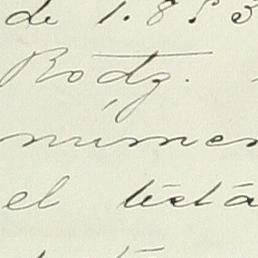 de 1.853
Rodz.
numer
el testa